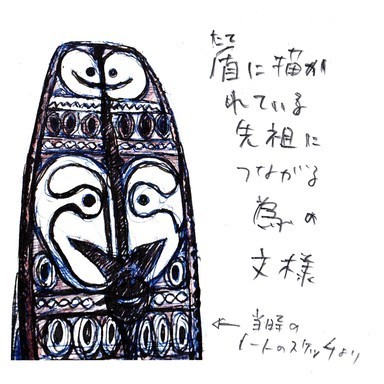 たて
盾に描か
れている
先祖に
つながる
為の
文様
← 当時の
ノートのスケッチより